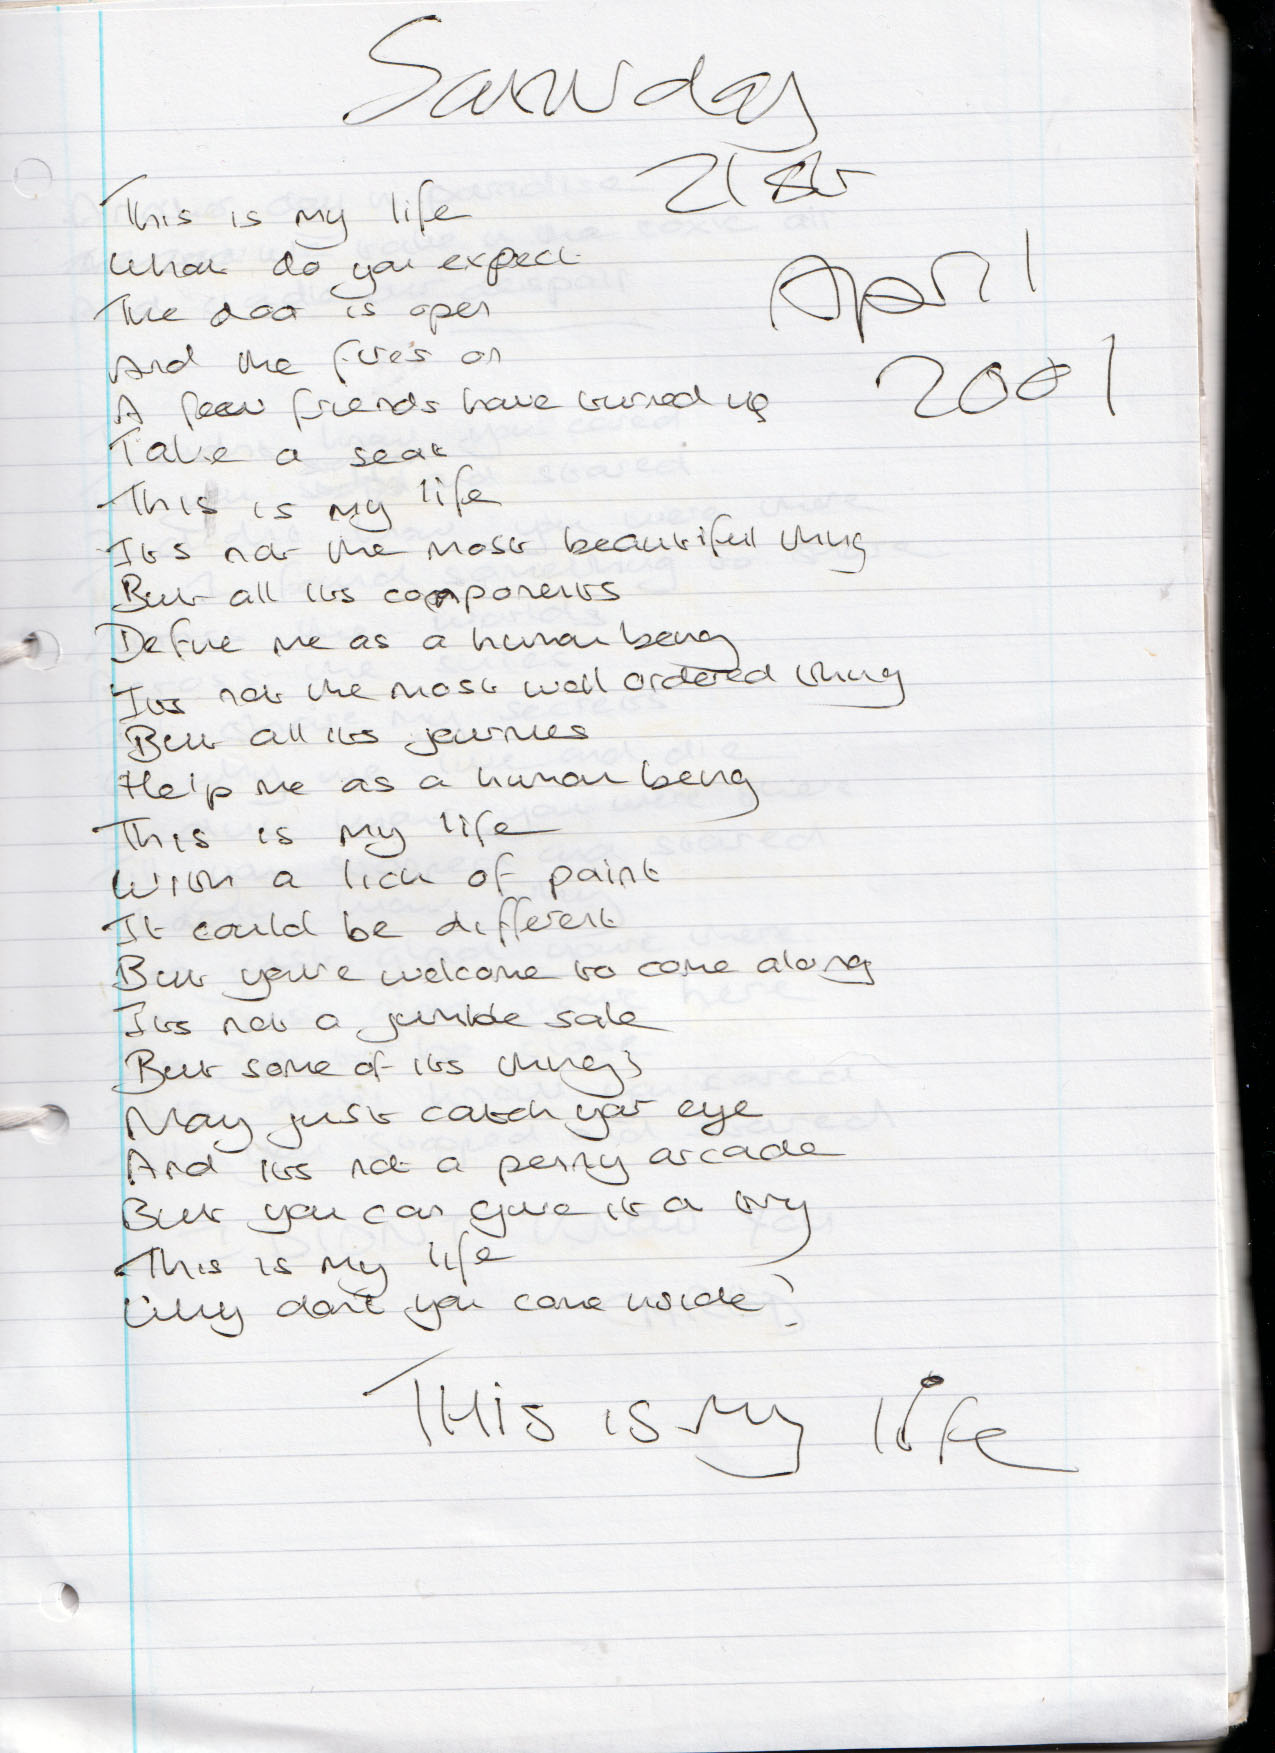 Saturday
21st
April
2001
This is my life
What do you expect
The door is open
And the fires on
A few friends have turned up
Take a seat
This is my life
Its not the most beautiful thing
But all its components
Define me as a human being
Its not the most well ordered thing
But all its journies
Help me as a human being
This is my life
With a lick of paint
It could be different
But you're welcome to come along
Its not a jumble sale
But some of its things
May just catch your eye
And its not a penny arcade
But you can give it a try
This is my life
Why dont you come inside?
THis is My life